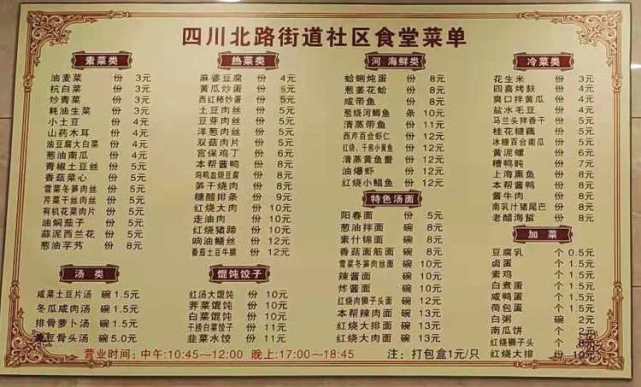 四川北路街道社区食堂菜单
素菜类
油麦菜 份 3元
杭白菜 份 3元
炒青菜 份 3元
蚝油生菜 份 3元
小土豆 份 4元
山药木耳 份 4元
油豆腐大白菜 份 4元
葱油南瓜 份 4元
青椒土豆丝 份 5元
香菇菜心 份 5元
雪菜冬笋肉丝 份 5元
芹菜干丝肉丝 份 5元
有机花菜肉片 份 5元
油焖茄子 份 5元
蒜泥西兰花 份 5元
葱油芋艿 份 8元
汤类
咸菜土豆片汤 碗 1.5元
冬瓜咸肉汤 碗 1.5元
排骨萝卜汤 碗 1.5元
豆骨头汤 碗 5.0元
热菜类
麻婆豆腐 份 4元
黄瓜炒蛋 份 5元
西红柿炒蛋 份 5元
土豆肉丝 份 5元
豆芽肉丝 份 5元
洋葱肉丝 份 5元
双菇肉片 份 5元
宫保鸡丁 份 6元
本帮酱鸭 份 8元
鸡鸭血烧豆腐 份 8元
笋干烧肉 份 8元
糖醋排条 份 9元
红烧大肉 份 10元
走油肉 份 10元
红烧猪蹄 份 10元
响油鳝丝 份 12元
番茄土豆牛腩 份 12元
馄饨饺子
红汤大馄饨 份 10元
荠菜馄饨 份 10元
白菜馄饨 份 10元
干捞白菜饺子 份 11元
韭菜水饺 份 11元
河 海鲜类
蛤蜊炖蛋 份 8元
葱姜花蛤 份 8元
咸带鱼 份 8元
葱烧河鲫鱼 条 10元
清蒸带鱼 份 11元
西芹百合虾仁 份 12元
红烧、干煎小黄鱼 份 12元
清蒸黄鱼鲞 份 12元
油爆虾 份 12元
红烧小鲳鱼 份 12元
特色汤面
阳春面 份 5元
葱油拌面 碗 8元
素什锦面 碗 8元
香菇面筋面 碗 8元
雪菜冬笋肉丝面 碗 10元
辣酱面 碗 10元
炸酱面 碗 10元
红烧肉狮子头面 碗 12元
本帮辣肉面 碗 12元
红烧大排面 碗 12元
红烧大肉面 碗 13元
冷菜类
花生米 份 3元
四喜烤麸 份 4元
爽口拌黄瓜 份 4元
盐水毛豆 份 4元
马兰头拌香干 份 6元
桂花糖藕 份 5元
冰糖百合南瓜 份 5元
黄泥螺 份 6元
糟鸭肫 份 7元
上海熏鱼 份 8元
本帮酱鸭 份 8元
酱牛肉 份 8元
南乳汁猪尾巴 份 8元
老醋海蜇 份 8元
加菜
豆腐乳 个 0.5元
卤蛋 个 1.5元
素鸡 个 1.5元
白煮蛋 个 1.5元
咸鸭蛋 个 1.5元
荷包蛋 个 1.5元
白粥 碗 2元
南瓜饼 个 2元
红烧狮子头 个 8元
红烧大排 份 10元
营业时间：中午:10:45~12:00 晚上:17:00~18:45 注：打包盒1元/只